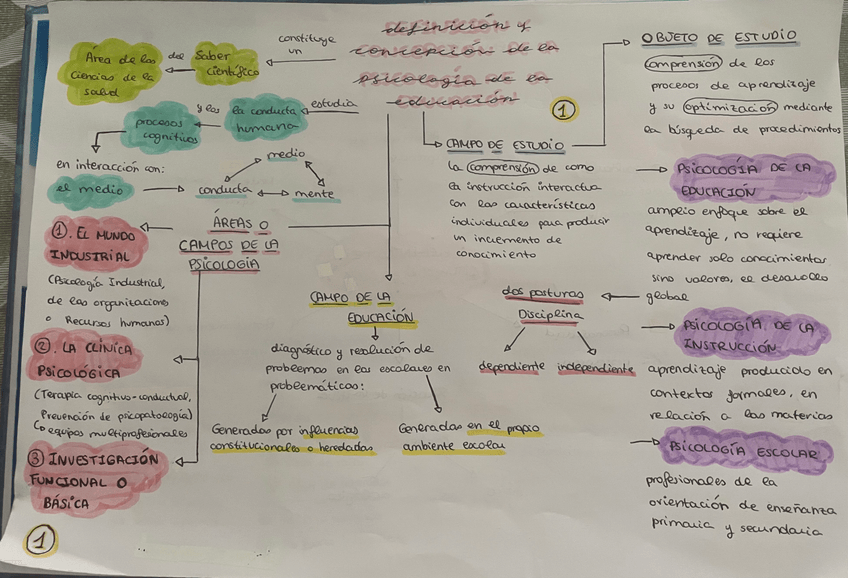 definición y
concepción de la
psicología de la
educación
1
constituye
un
Saber
científico
del
Área de las
Ciencias de la
salud
estudia
la conducta
humana
y los
procesos
cognitivos
en interacción con:
el medio
conducta
medio
mente
ÁREAS O
CAMPOS DE LA
PSICOLOGÍA
1. EL MUNDO
INDUSTRIAL
(Psicología Industrial,
de las organizaciones
o Recursos humanos)
2. LA CLÍNICA
PSICOLÓGICA
(Terapia cognitivo-conductual,
Prevención de psicopatología)
equipos multiprofesionales
3 INVESTIGACIÓN
FUNCIONAL O
BÁSICA
1
CAMPO DE LA
EDUCACIÓN
diagnóstico y resolución de
problemas en los escolares en
problemáticos:
Generadas por influencias
constitucionales o heredadas
Generadas en el propio
ambiente escolar
CAMPO DE ESTUDIO
la comprensión de como
la instrucción interactua
con las características
individuales para producir
un incremento de
conocimiento
dos posturas
Disciplina
dependiente independiente
OBJETO DE ESTUDIO
comprensión de los
procesos de aprendizaje
y su optimización mediante
la búsqueda de procedimientos
PSICOLOGÍA DE LA
EDUCACIÓN
amplio enfoque sobre el
aprendizaje, no requiere
aprender solo conocimientos
sino valores, el desarrollo
global
PSICOLOGÍA DE LA
INSTRUCCIÓN
aprendizaje producido en
contextos formales, en
relación a las materias
PSICOLOGÍA ESCOLAR
profesionales de la
orientación de enseñanza
primaria y secundaria